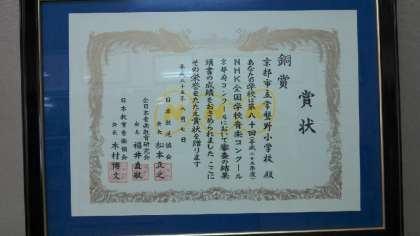 賞状
銅賞
京都市立常盤野小学校 殿
あなたの学校は第八十回(平成二十五年度)
NHK全国学校音楽コンクール
京都府コンクールにおいて審査の結果
頭書の成績をおさめられました ここに
その栄誉をたたえ賞状を贈ります
平成二十五年 月 七日
日本放送協会
会長 松本正之
全日本音楽教育研究会
会長 福井直敬
日本教育音楽協会
会長 木村博文